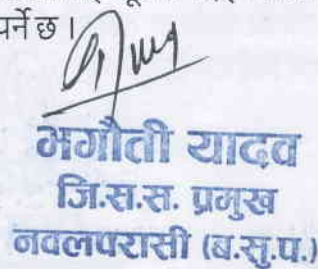 पर्ने छ ।
भगौती यादव
जि.स.स. प्रमुख
नवलपरासी (ब.सु.प.)